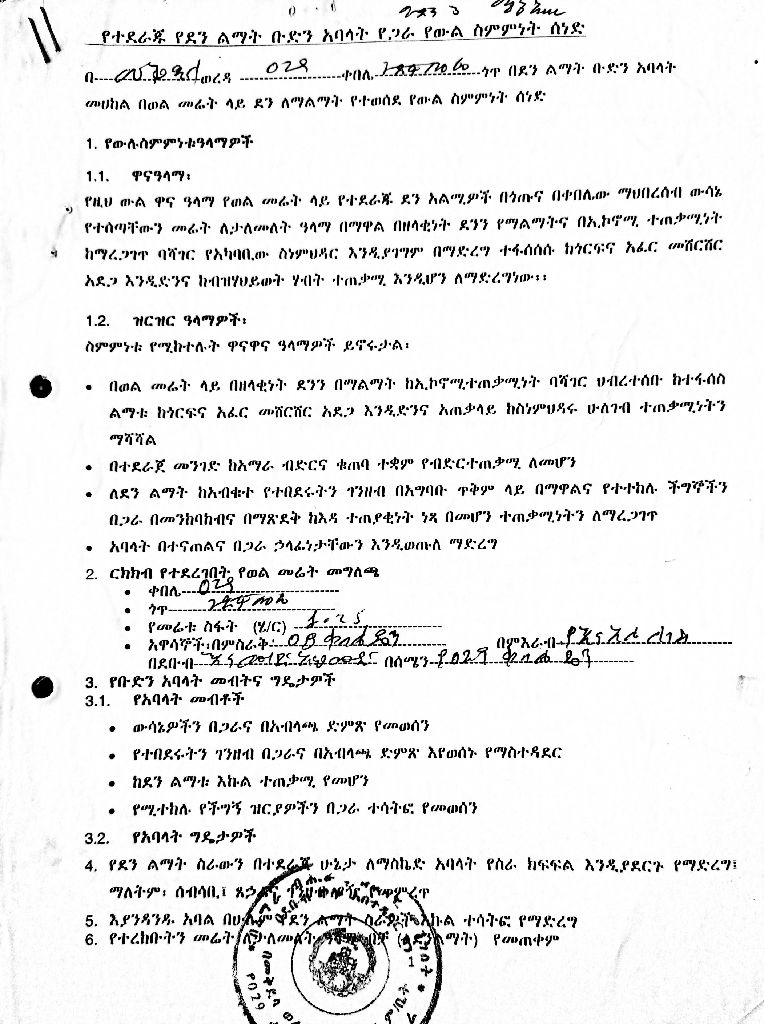 የተደራጁ የደን ልማት ቡድን አባላት የጋራ የውል ስምምነት ሰነድ
በ ወረዳ 029 ቀበሌ ጎጥ በደን ልማት ቡድን አባላት
መሀከል በወል መሬት ላይ ደን ለማልማት የተወሰደ የውል ስምምነት ሰነድ
1. የውሉስምምነቱዓላማዎች
1.1. ዋናዓላማ፡
የዚህ ውል ዋና ዓላማ የወል መሬት ላይ የተደራጁ ደን አልሚዎች በጎጡና በቀበሌው ማህበረሰብ ውሳኔ
የተሰጣቸውን መሬት ለታለመለት ዓላማ በማዋል በዘላቂነት ደንን የማልማትና በኢኮኖሚ ተጠቃሚነት
ከማረጋገጥ ባሻገር የአካባቢው ስነምህዳር እንዲያገግም በማድረግ ተፋሰሱ ከጎርፍና አፈር መሸርሸር
አደጋ እንዲድንና ከብዝሃህይወት ሃብት ተጠቃሚ እንዲሆን ለማድረግነው፡፡
1.2. ዝርዝር ዓላማዎች፡
ስምምነቱ የሚከተሉት ዋናዋና ዓላማዎች ይኖሩታል፡
• በወል መሬት ላይ በዘላቂነት ደንን በማልማት ከኢኮኖሚተጠቃሚነት ባሻገር ህብረተሰቡ ከተፋሰስ
ልማቱ ከጎርፍና አፈር መሸርሸር አደጋ እንዲድንና አጠቃላይ ከስነምህዳሩ ሁለገብ ተጠቃሚነትን
ማሻሻል
• በተደራጀ መንገድ ከአማራ ብድርና ቁጠባ ተቋም የብድርተጠቃሚ ለመሆን
• ለደን ልማት ከአብቁተ የተበደሩትን ገንዘብ በአግባቡ ጥቅም ላይ በማዋልና የተተከሉ ችግኞችን
በጋራ በመንከባከብና በማጽደቅ ከእዳ ተጠያቂነት ነጻ በመሆን ተጠቃሚነትን ለማረጋገጥ
• አባላት በተናጠልና በጋራ ኃላፊነታቸውን እንዲወጡለ ማድረግ
2. ርክክብ የተደረገበት የወል መሬት መግለጫ
• ቀበሌ 029
• ጎጥ
• የመሬቱ ስፋት (ሄ/ር) 1.25
• አዋሳኞች፡በምስራቅ፡ በምእራብ
በደቡብ በሰሜን
3. የቡድን አባላት መብትና ግዴታዎች
3.1. የአባላት መብቶች
• ውሳኔዎችን በጋራና በአብላጫ ድምጽ የመወሰን
• የተበደሩትን ገንዘብ በጋራና በአብላጫ ድምጽ እየወሰኑ የማስተዳደር
• ከደን ልማቱ እኩል ተጠቃሚ የመሆን
• የሚተከሉ የችግኝ ዝርያዎችን በጋራ ተሳትፎ የመወሰን
3.2. የአባላት ግዴታዎች
4. የደን ልማት ስራውን በተደራጀ ሁኔታ ለማስኬድ አባላት የስራ ክፍፍል እንዲያደርጉ የማድረግ፤
ማለትም፡ ሰብሳቢ፤ የመምረጥ
5. እያንዳንዱ አባል በሁሉም የደን ልማት ስራዎች እኩል ተሳትፎ የማድረግ
6. የተረከቡትን መሬት ለታለመለት ዓላማ ብቻ ልማት) የመጠቀም